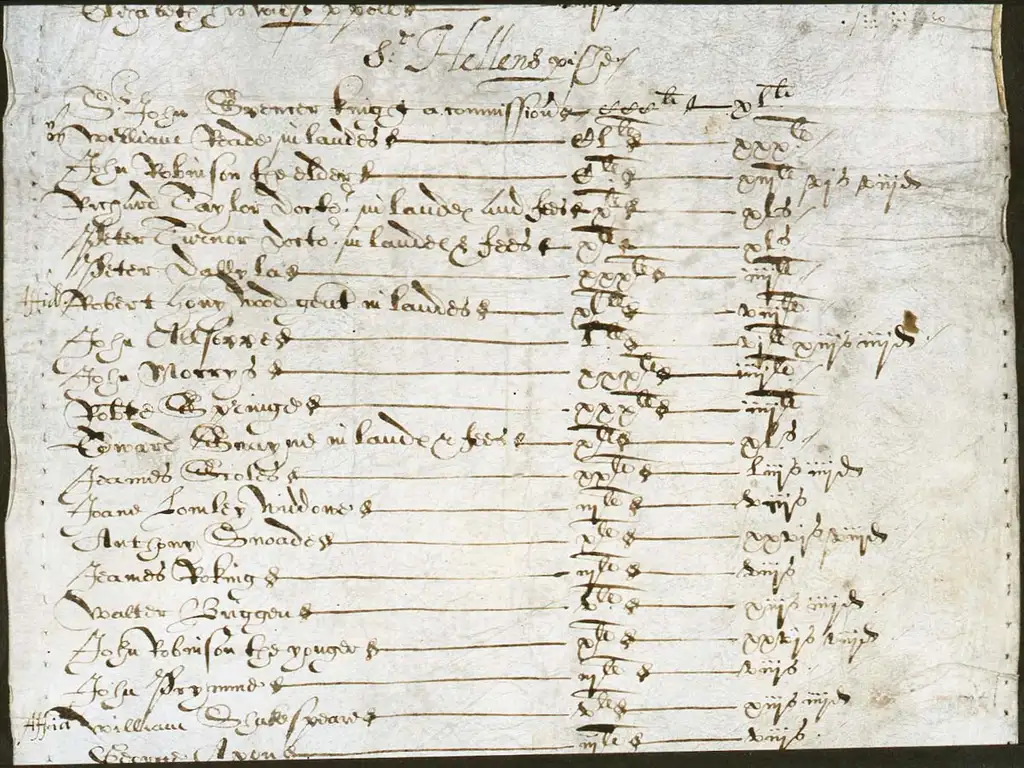 St Hellens pishe
Sr John Spencer knight a commissioner xlli
William Reade in landes clli xxxli
John Robinson the elder
Richard Taylor Docto.r in landes and fees xli xls
Peter Turnor Docto.r in landes & fees xli xls
Peter Dallyla xxxli iiijli
Affid Robert Hony wood gent in landes xlli viijli
John Allsoppe lli vjli xiijs iiijd
John Morrys xxxli iiijli
Robte Springe xxxli iiijli
Edward in landes & fees xli xls
Jeames Scoles xxli liijs iiijd
Joane Lomley widdowe iijli viijs
Anthony Snoade xli xxvjs viijd
Jeames iijli viijs
Walter Briggen vli xiijs iiijd
John Robinson the yonger xli xxvjs viijd
John Prymme iijli viijs
Affid William Shakespeare vli xiijs iiijd
George Axon iijli viijs